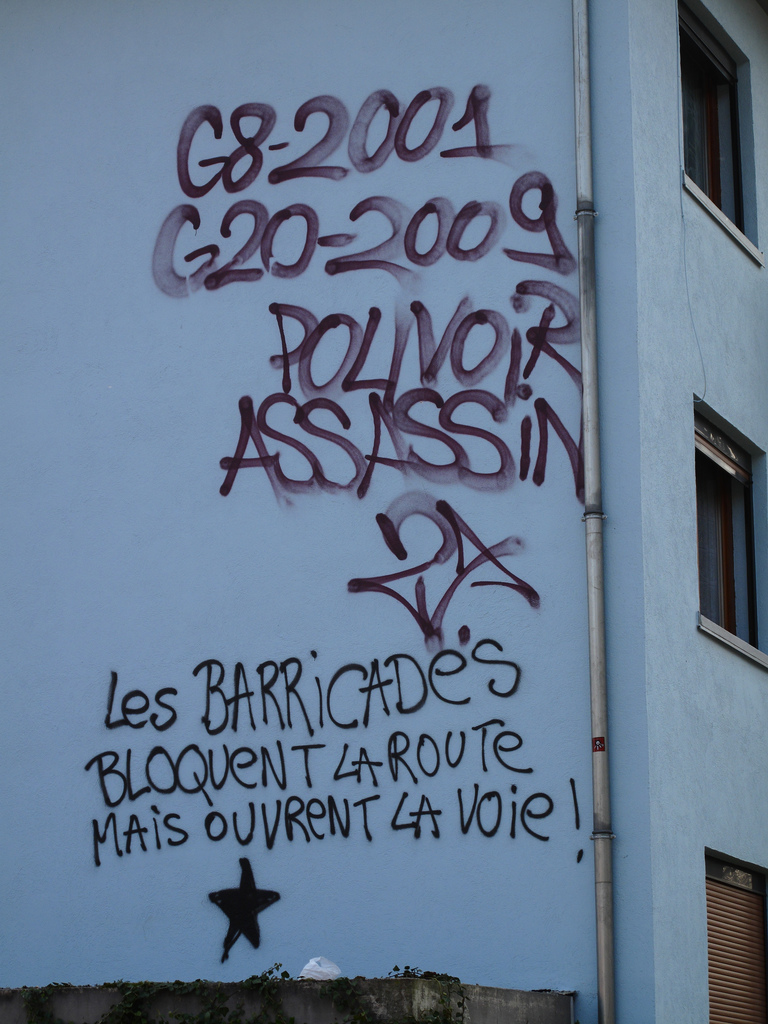 G8-2001
G20-2009
POUVOIR
ASSASSIN
Les BARRiCADeS
BLOQUeNT LA ROUTe
MAiS OUVReNT LA VOie!